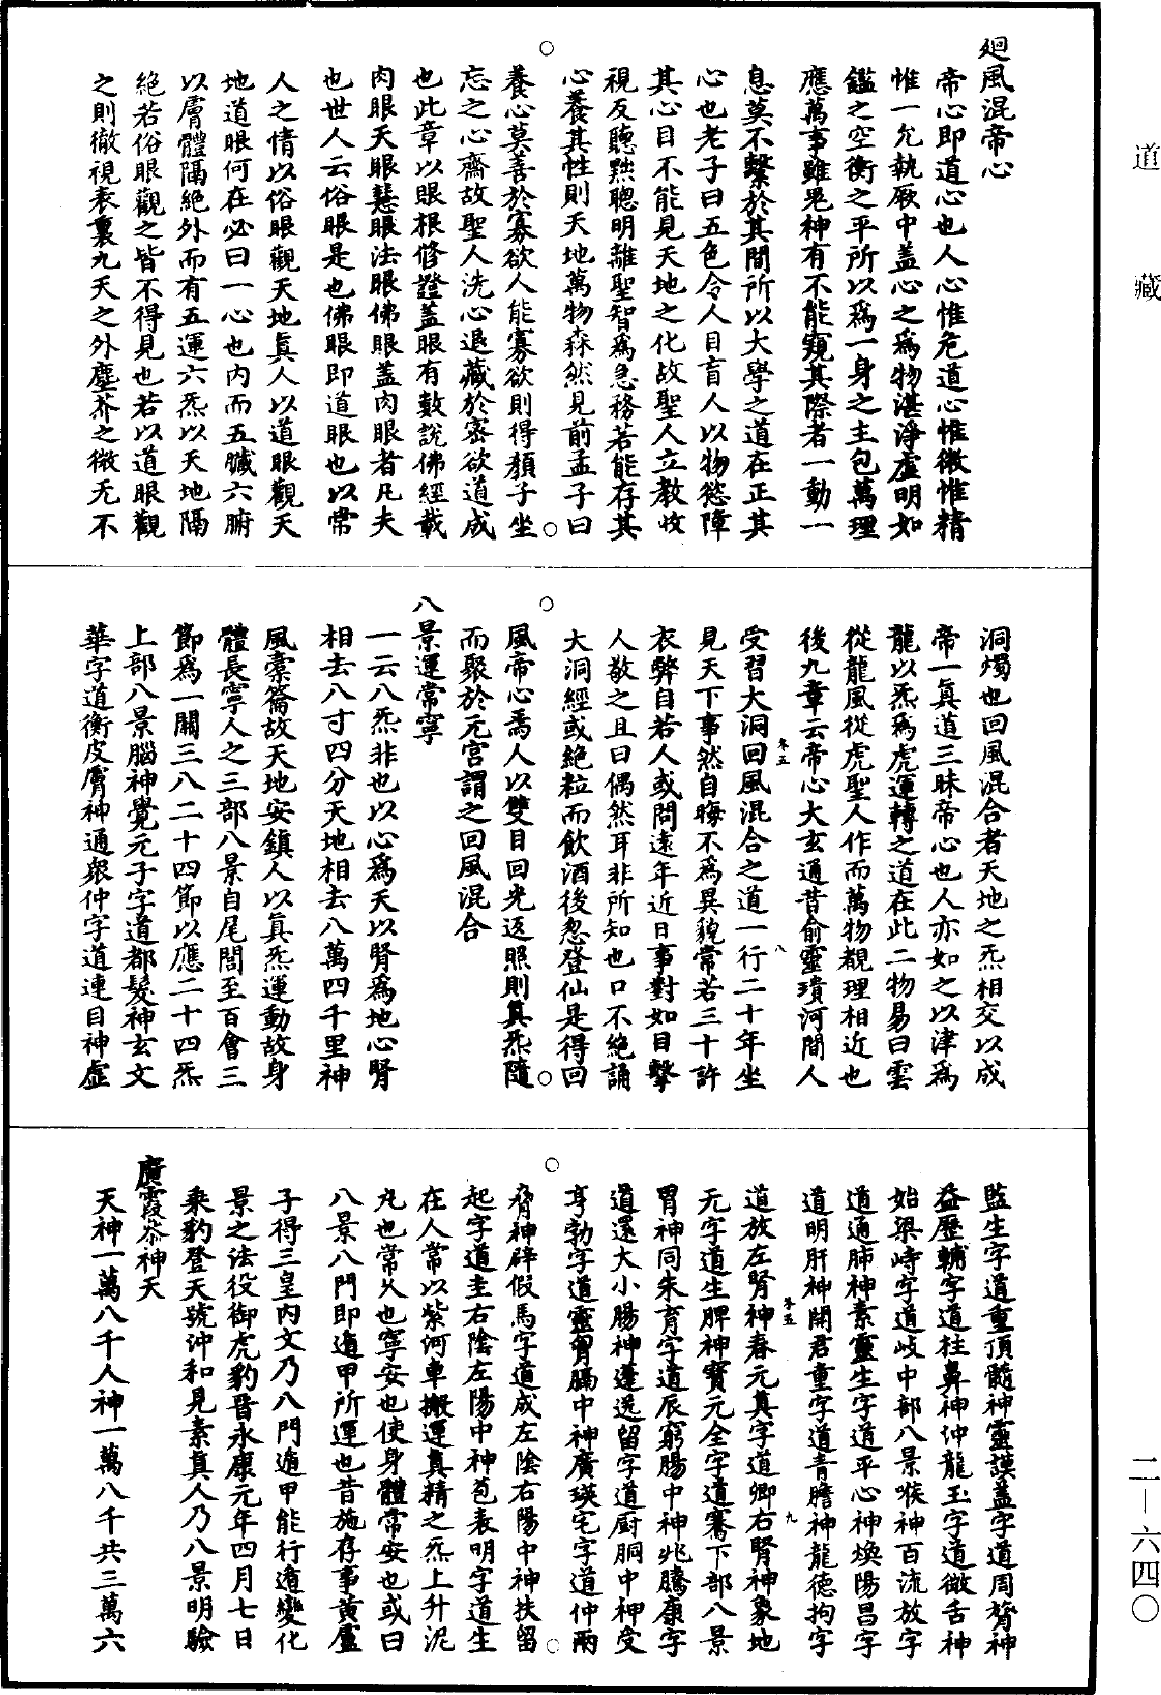 道藏
廻風混帝心
帝心即道心也人心惟危道心惟微惟精
惟一允執厥中盖心之為物湛淨虛明如
鑑之空衡之平所以為一身之主包萬理
應萬事雖鬼神有不能窺其際者一動一
息莫不繫於其間所以大學之道在正其
心也老子曰五色令人目盲人以物慾障
其心目不能見天地之化故聖人立教收
視反聽黜聰明離聖智為急務若能存其
心養其性則天地萬物森然見前孟子曰
養心莫善於寡欲人能寡欲則得顏子坐
忘之心齋故聖人洗心退藏於密欲道成
也此章以眼根修證盖眼有數說佛經載
肉眼天眼慧眼法眼佛眼盖肉眼者凡夫
也世人云俗眼是也佛眼即道眼也以常
人之情以俗眼觀天地真人以道眼觀天
地道眼何在必曰一心也内而五臟六腑
以膚體隔絕外而有五運六炁以天地隔
絕若俗眼觀之皆不得見也若以道眼觀
之則徹視表裏九天之外塵芥之微无不
洞燭也回風混合者天地之炁相交以成
帝一真道三昧帝心也人亦如之以津為
龍以炁為虎運轉之道在此二物易曰雲
從龍風從虎聖人作而萬物覩理相近也
後九章云帝心大玄通昔俞靈璝河間人
受習大洞回風混合之道一行二十年坐
卷五 八
見天下事然自晦不為異貌常若三十許
衣弊自若人或問遠年近日事對如目擊
人敬之且曰偶然耳非所知也口不絕誦
大洞經或絕粒而飲酒後忽登仙是得回
風帝心焉人以雙目回光返照則真炁隨
而聚於元宮謂之回風混合
八景運常寧
一云八炁非也以心為天以腎為地心腎
相去八寸四分天地相去八萬四千里神
風橐籥故天地安鎮人以真炁運動故身
體長寧人之三部八景自尾閭至百會三
節為一關三八二十四節以應二十四炁
上部八景腦神覺元子字道都髮神玄文
華字道衡皮膚神通衆仲字道連目神虛
監生字道童頂髓神靈謨盖字道周膂神
益歷輔字道柱鼻神仲龍玉字道微舌神
始梁峙字道岐中部八景喉神百流放字
道通肺神素靈生字道平心神煥陽昌字
道明肝神開君童字道青膽神龍德拘字
道放左腎神春元真字道卿右腎神象地
卷五 九
无字道生脾神寶元全字道騫下部八景
胃神同朱育字道辰窮腸中神兆騰康字
道還大小腸神蓬送留字道厨胴中神受
亨勃字道靈胷膈中神廣瑛宅字道仲兩
脅神辟假馬字道成左陰右陽中神扶留
起字道圭右陰左陽中神苞表明字道生
在人常以紫河車搬運真精之炁上升泥
丸也常久也寧安也使身體常安也或曰
八景八門即遁甲所運也昔施存事黃盧
子得三皇内文乃八門遁甲能行遁變化
景之法役御虎豹晉永康元年四月七日
乘豹登天號沖和見素真人乃八景明驗
廣霞恭神天
天神一萬八千人神一萬八千共三萬六
二—六四〇